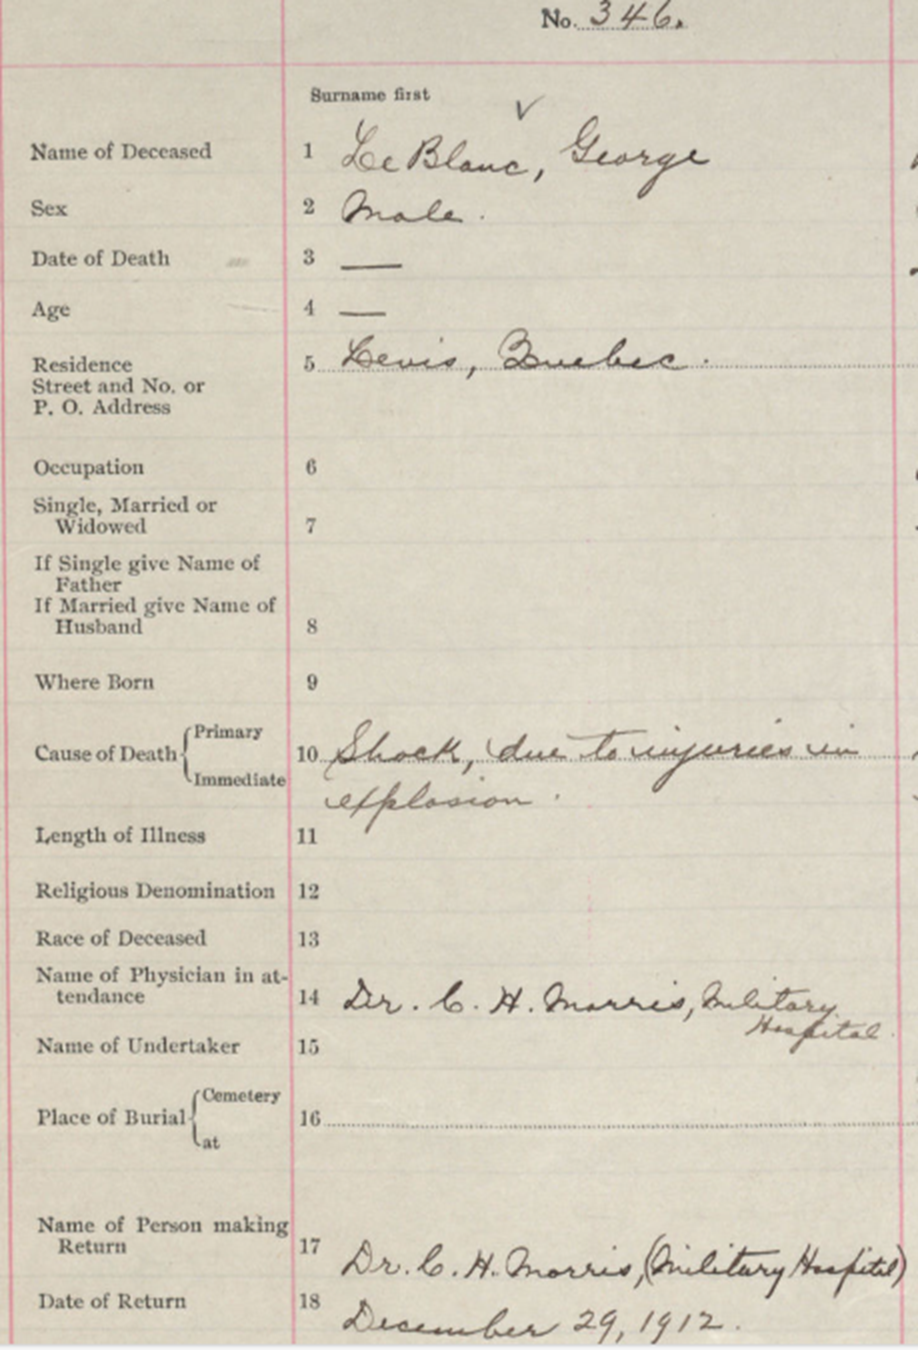 No. 346.
Surname first
Name of Deceased 1 LeBlanc, George
Sex 2 Male.
Date of Death 3 —
Age 4 —
Residence 5 Levis, Quebec.
Street and No. or
P. O. Address
Occupation 6
Single, Married or
Widowed 7
If Single give Name of
Father
If Married give Name of
Husband 8
Where Born 9
Primary
Cause of Death 10 Shock, due to injuries in
Immediate
explosion.
Length of Illness 11
Religious Denomination 12
Race of Deceased 13
Name of Physician in at-
tendance 14 Dr. C. H. Morris, Military
Hospital.
Name of Undertaker 15
Cemetery
Place of Burial 16
at
Name of Person making
Return 17 Dr. C. H. Morris, (Military Hospital)
Date of Return 18 December 29, 1912.